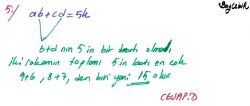 5-) ab+cd=5k
b+d nin 5 in bir katı olmalı
iki rakamın toplamı 5 in katı en çok
9+6, 8+7, den biri yani 15 olur
CEVAP: D